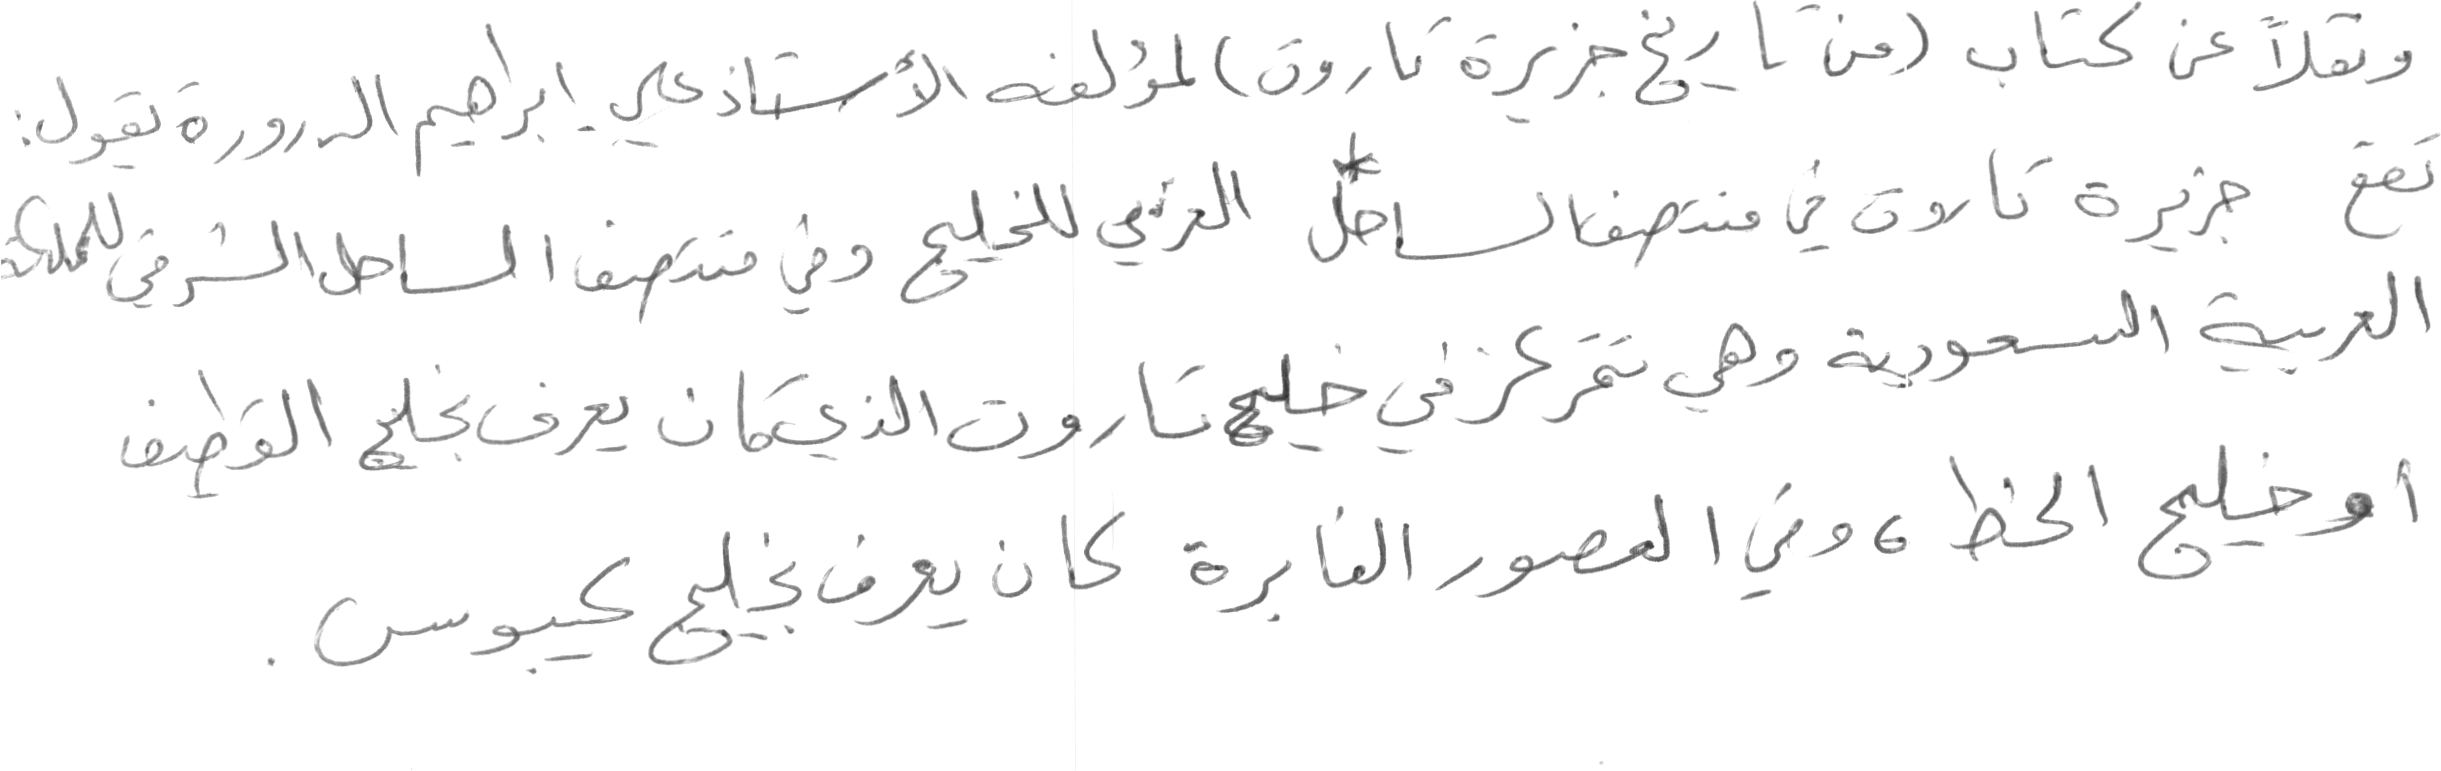 ونقلاً عن كتاب (من تاريخ جزيرة تاروت) لمؤلفه الأستاذ علي ابراهيم الدرورة يقول:
تقع جزيرة تاروت في منتصف الساحل الغربي للخليج وفي منتصف الساحل الشرقي للمملكة
العربية السعودية وهي تتمركز في خليج تاروت الذي كان يعرف بخليج القطيف
او خليج الخط ، وفي العصور الغابرة كان يعرف بخليج كيبوس .